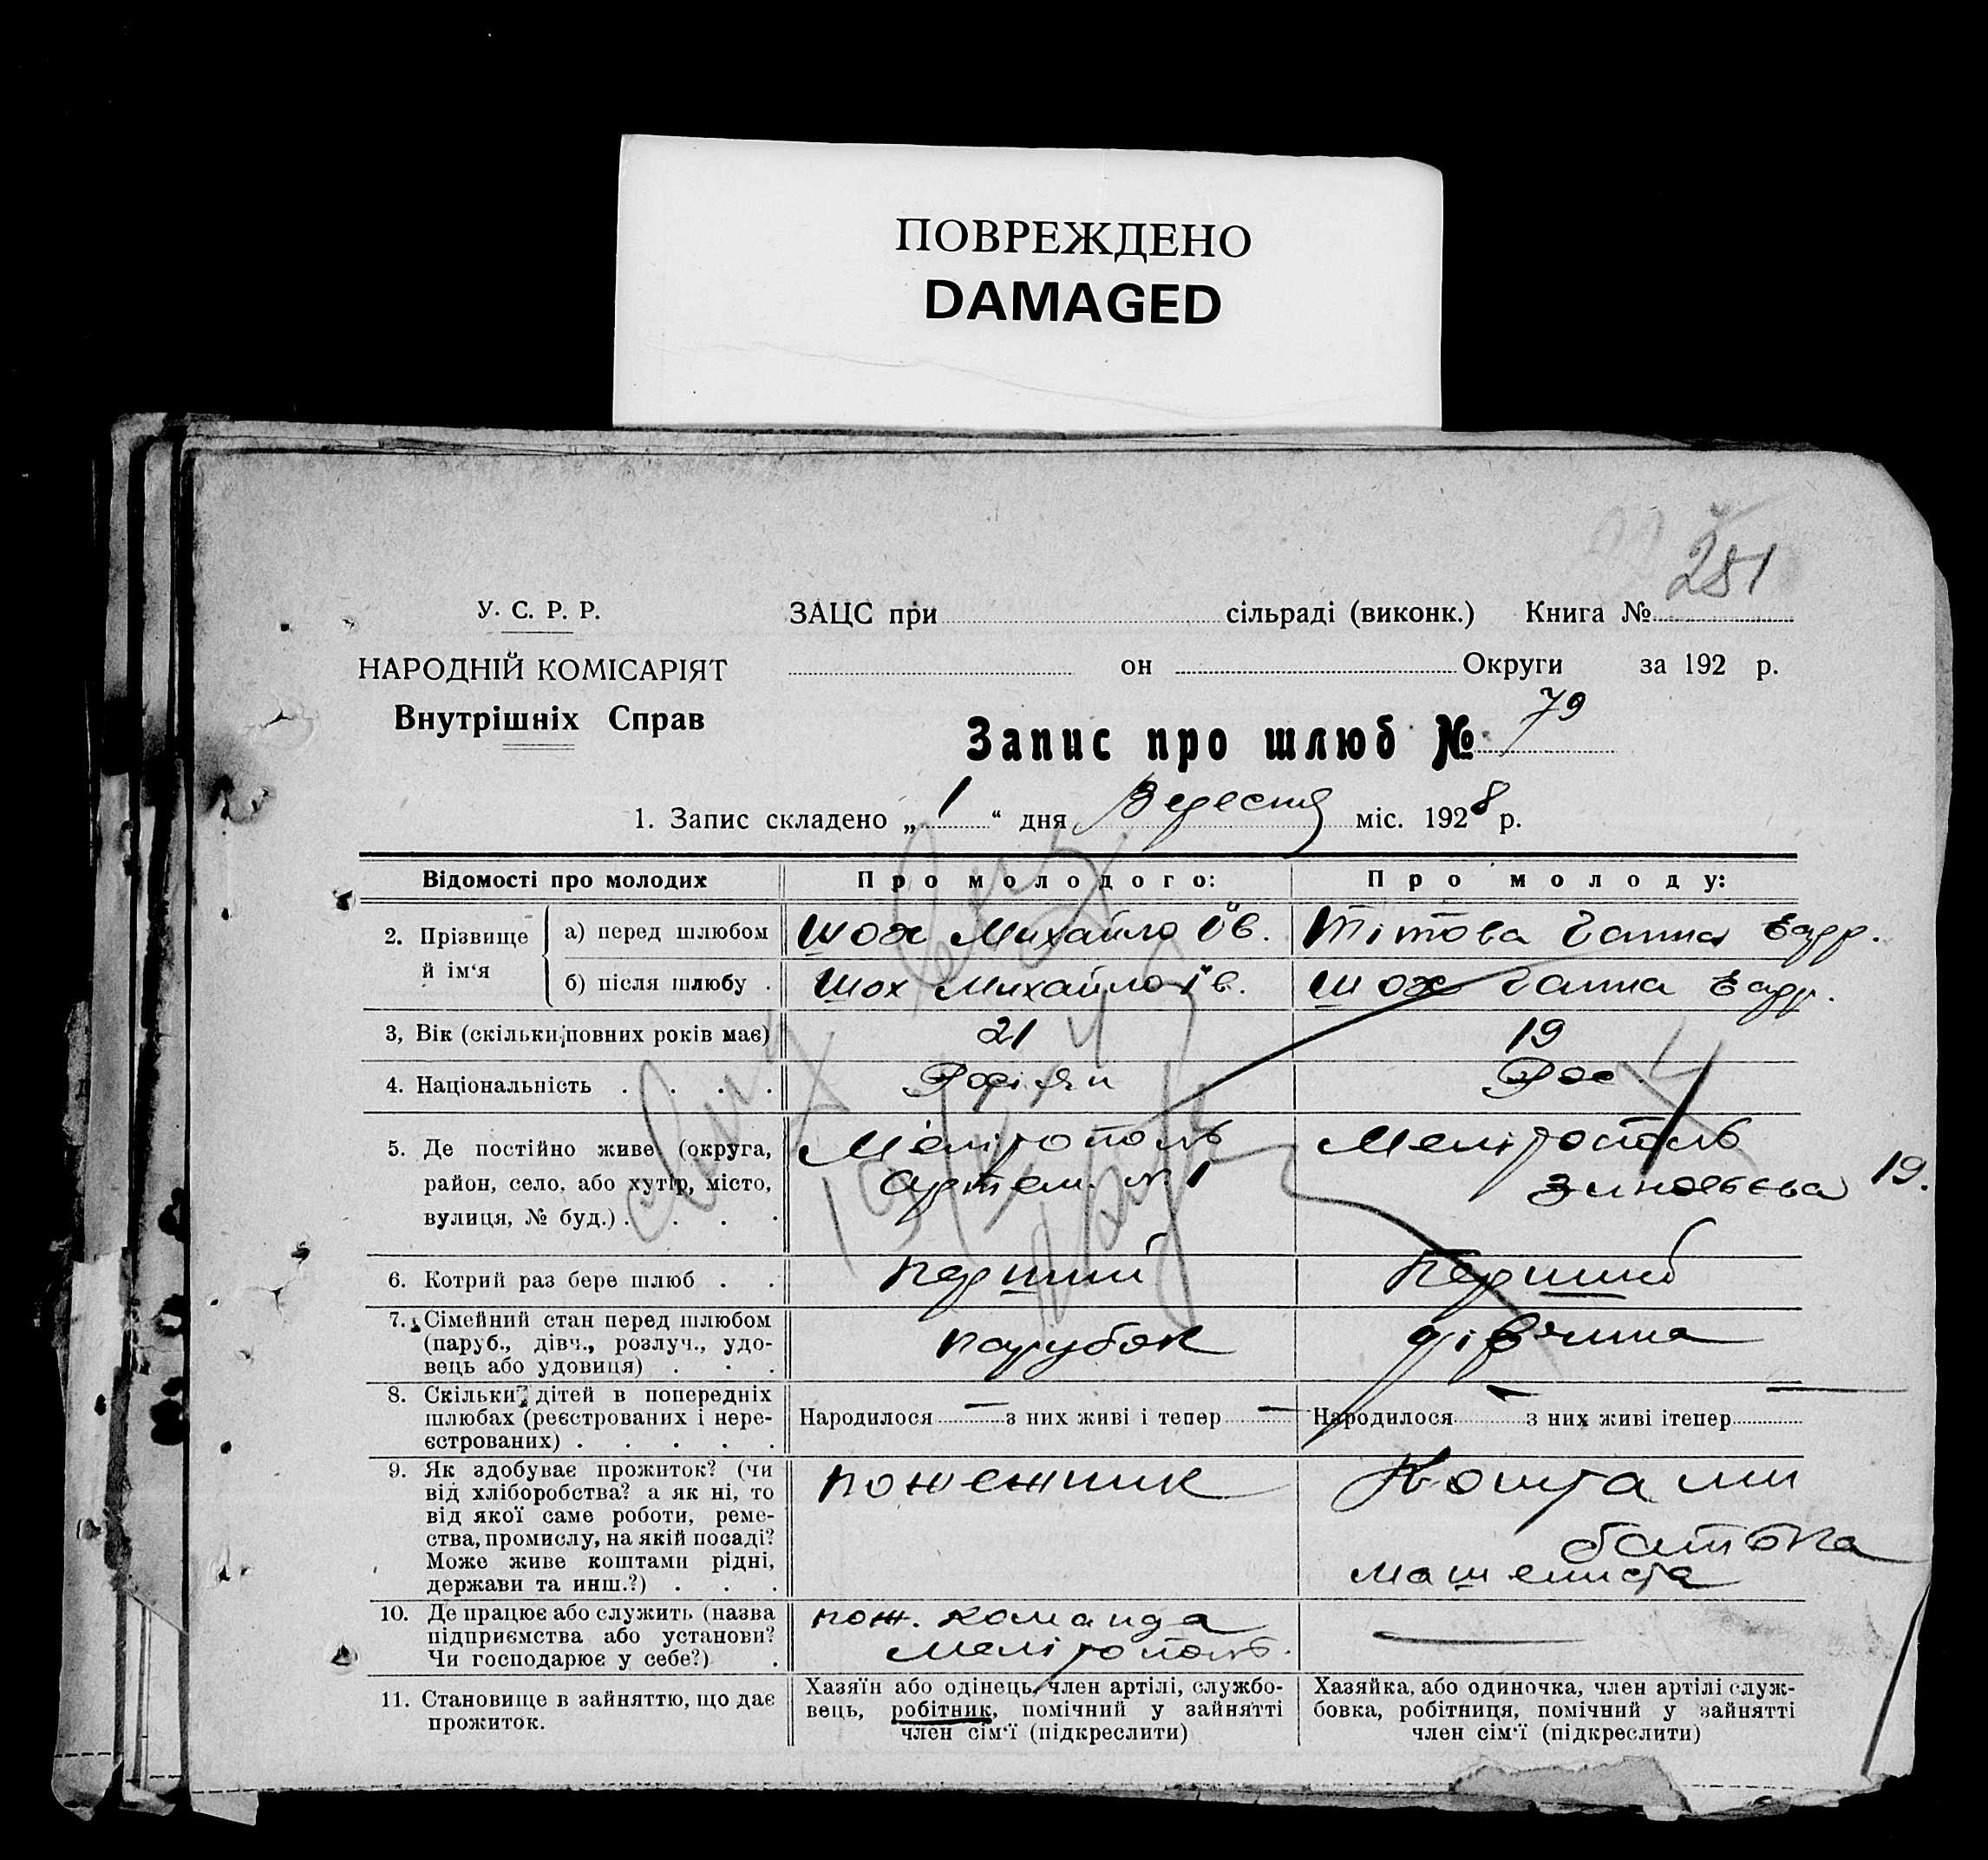 ПОВРЕЖДЕНО
DAMAGED
251
У. С. Р. Р.
ЗАЦС при сільраді (виконк.) Книга №
НАРОДНІЙ КОМІСАРІЯТ
он Округи за 192 р.
Внутрішніх Справ
Запис про шлюб № 79
1. Запис складено „ 1 “ дня Вересня міс. 1928 р.
Відомості про молодих
Про молодого:
Про молоду:
2. Прізвище й ім‘я
а) перед шлюбом
Шох Михайло Ів.
Тітова Ганна
б) після шлюбу .
Шох Михайло Ів.
Шох Ганна
3, Вік (скільки повних років має)
21
19
4. Національність . . . .
Росіян
Рос
5. Де постійно живе (округа,
район, село, або хутір, місто,
вулиця, № буд.) . . . .
Мелітополь
Артем. № 1
Мелітополь
Зинов'єва 19.
6. Котрий раз бере шлюб . .
перший
перший
7. Сімейний стан перед шлюбом
(паруб., дівч., розлуч., удо-
вець або удовиця) . . .
парубок
дівчина
8. Скільки дітей в попередніх
шлюбах (реєстрованих і нере-
єстрованих) . . . . .
Народилося — з них живі і тепер —
Народилося з них живі ітепер
9. Як здобуває прожиток? (чи
від хліборобства? а як ні, то
від якої саме роботи, реме-
ства, промислу, на якій посаді?
Може живе коштами рідні,
держави та инш.?) . . .
пожежник
Коштами
батька
машиниста
10. Де працює або служить (назва
підприємства або установи?
Чи господарює у себе?) .
пож. команда
Мелітополь.
—
11. Становище в зайняттю, що дає
прожиток.
Хазяїн або одінець, член артілі, службо-
вець, робітник, помічний у зайнятті
член сім‘ї (підкреслити)
Хазяйка, або одиночка, член артілі служ-
бовка, робітниця, помічний у зайнятті
член сім‘ї (підкреслити)